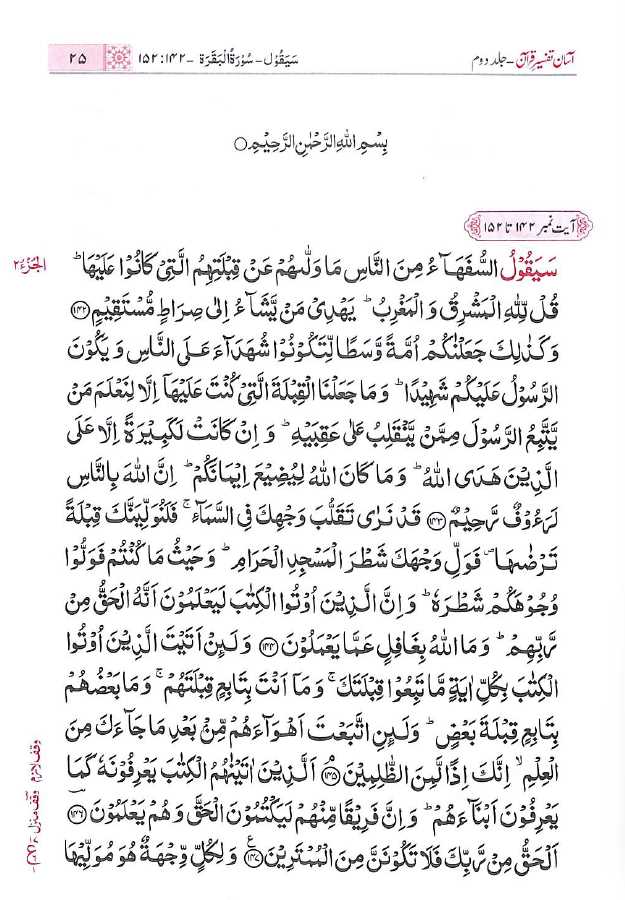 آسان تفسیر قرآن - جلد دوم
سَيَقُوْل - سُوْرَةُ الْبَقَرَة - ۱۴۲ : ۱۵۲
۲۵
بِسْمِ اللهِ الرَّحْمٰنِ الرَّحِيْمِ ○
آیت نمبر ۱۴۲ تا ۱۵۲
سَيَقُوْلُ السُّفَهَآءُ مِنَ النَّاسِ مَا وَلّٰىهُمْ عَنْ قِبْلَتِهِمُ الَّتِيْ كَانُوْا عَلَيْهَا ؕ
الجزء ۲
قُلْ لِّلّٰهِ الْمَشْرِقُ وَ الْمَغْرِبُ ؕ يَهْدِيْ مَنْ يَّشَآءُ اِلٰى صِرَاطٍ مُّسْتَقِيْمٍ ﴿۱۴۲﴾
وَ كَذٰلِكَ جَعَلْنٰكُمْ اُمَّةً وَّسَطًا لِّتَكُوْنُوْا شُهَدَآءَ عَلَى النَّاسِ وَ يَكُوْنَ
الرَّسُوْلُ عَلَيْكُمْ شَهِيْدًا ؕ وَ مَا جَعَلْنَا الْقِبْلَةَ الَّتِيْ كُنْتَ عَلَيْهَاۤ اِلَّا لِنَعْلَمَ مَنْ
يَّتَّبِعُ الرَّسُوْلَ مِمَّنْ يَّنْقَلِبُ عَلٰى عَقِبَيْهِ ؕ وَ اِنْ كَانَتْ لَكَبِيْرَةً اِلَّا عَلَى
الَّذِيْنَ هَدَى اللهُ ؕ وَ مَا كَانَ اللهُ لِيُضِيْعَ اِيْمَانَكُمْ ؕ اِنَّ اللهَ بِالنَّاسِ
لَرَءُوْفٌ رَّحِيْمٌ ﴿۱۴۳﴾ قَدْ نَرٰى تَقَلُّبَ وَجْهِكَ فِي السَّمَآءِ ۚ فَلَنُوَلِّيَنَّكَ قِبْلَةً
تَرْضٰىهَا ۪ فَوَلِّ وَجْهَكَ شَطْرَ الْمَسْجِدِ الْحَرَامِ ؕ وَ حَيْثُ مَا كُنْتُمْ فَوَلُّوْا
وُجُوْهَكُمْ شَطْرَهٗ ؕ وَ اِنَّ الَّذِيْنَ اُوْتُوا الْكِتٰبَ لَيَعْلَمُوْنَ اَنَّهُ الْحَقُّ مِنْ
رَّبِّهِمْ ؕ وَ مَا اللهُ بِغَافِلٍ عَمَّا يَعْمَلُوْنَ ﴿۱۴۴﴾ وَ لَىِٕنْ اَتَيْتَ الَّذِيْنَ اُوْتُوا
الْكِتٰبَ بِكُلِّ اٰيَةٍ مَّا تَبِعُوْا قِبْلَتَكَ ۚ وَ مَاۤ اَنْتَ بِتَابِعٍ قِبْلَتَهُمْ ۚ وَ مَا بَعْضُهُمْ
بِتَابِعٍ قِبْلَةَ بَعْضٍ ؕ وَ لَىِٕنِ اتَّبَعْتَ اَهْوَآءَهُمْ مِّنْ بَعْدِ مَا جَآءَكَ مِنَ
الْعِلْمِ ۙ اِنَّكَ اِذًا لَّمِنَ الظّٰلِمِيْنَ ﴿۱۴۵﴾ۘ اَلَّذِيْنَ اٰتَيْنٰهُمُ الْكِتٰبَ يَعْرِفُوْنَهٗ كَمَا
يَعْرِفُوْنَ اَبْنَآءَهُمْ ؕ وَ اِنَّ فَرِيْقًا مِّنْهُمْ لَيَكْتُمُوْنَ الْحَقَّ وَ هُمْ يَعْلَمُوْنَ ﴿۱۴۶﴾
اَلْحَقُّ مِنْ رَّبِّكَ فَلَا تَكُوْنَنَّ مِنَ الْمُمْتَرِيْنَ ﴿۱۴۷﴾ؑ وَ لِكُلٍّ وِّجْهَةٌ هُوَ مُوَلِّيْهَا
وقف لازم
وقف منزل